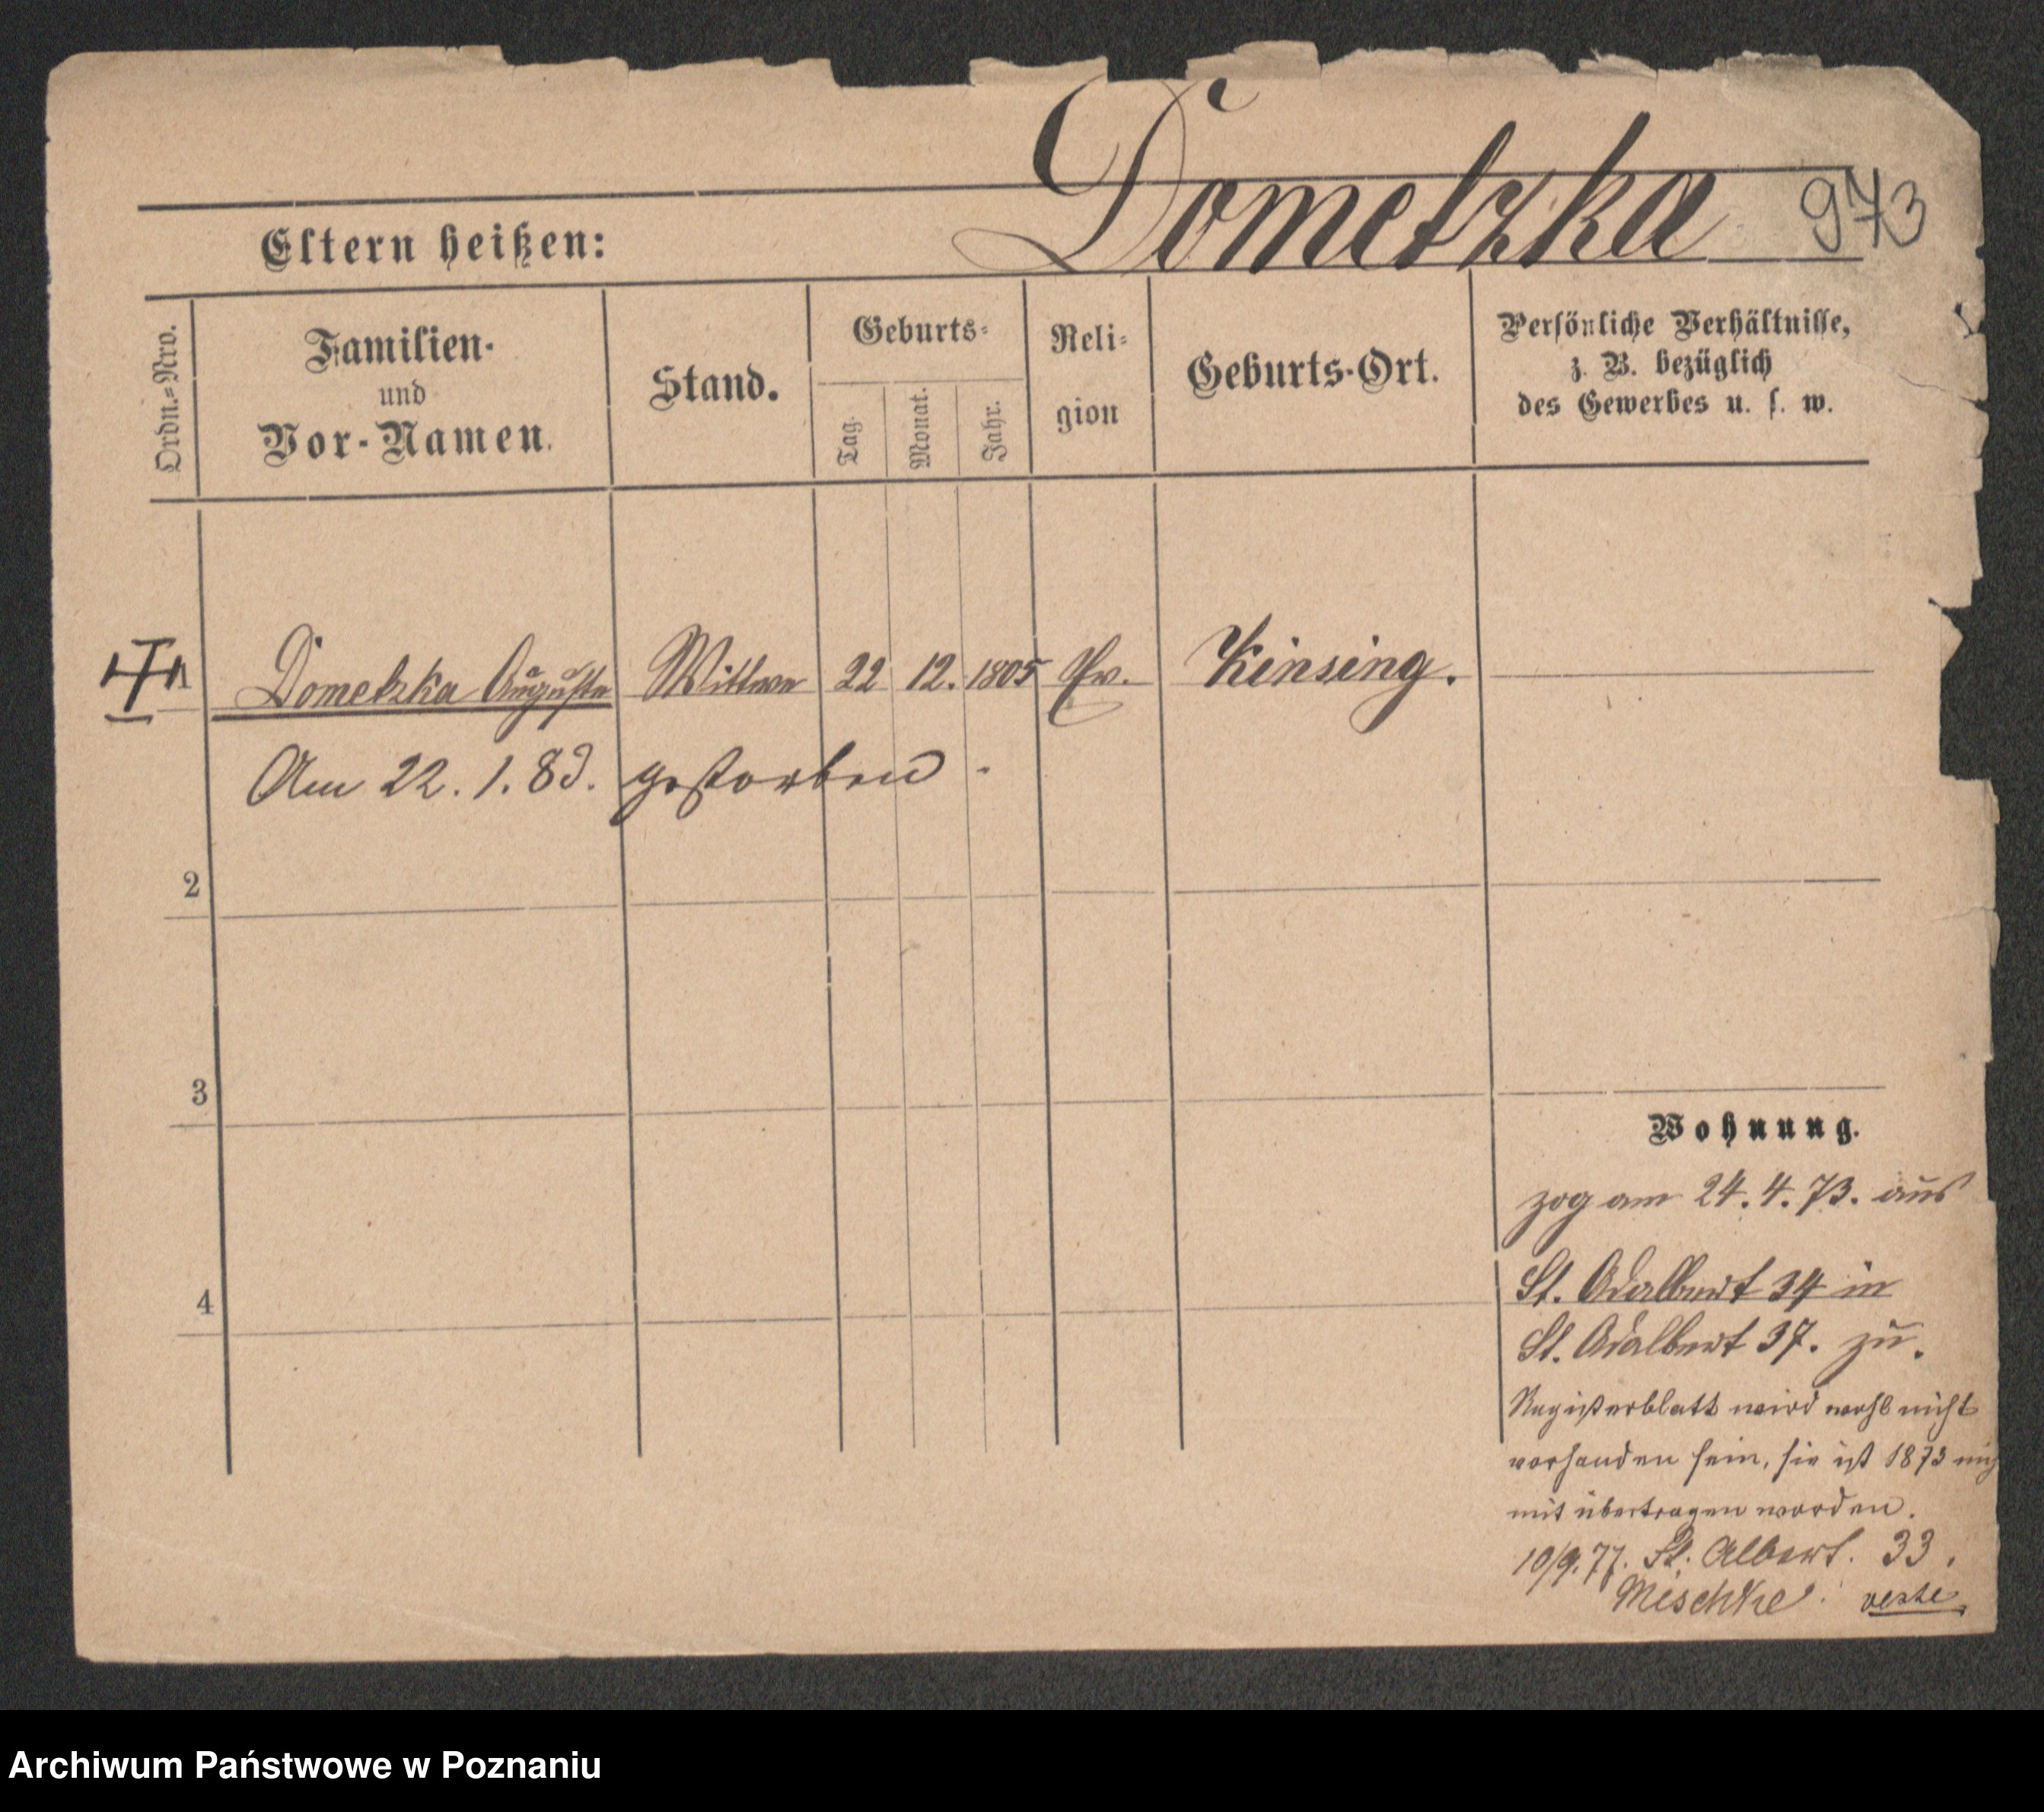 Dometzka 973
Eltern heißen:
Ordn.=Nro.
Familien-
und
Vor-Namen.
Stand.
Geburts-
Tag.
Monat.
Jahr.
Reli-
gion
Geburts-Ort.
Persönliche Verhältnisse,
z. B. bezüglich
des Gewerbes u. s. w.
1 Dometzka Auguste Wittwe 22 12. 1805 Ev. Kinsing.
Am 22. 1. 83. gestorben.
2
3
4
Wohnung.
zog am 24. 4. 73. aus
St. Adalbert 34 in
St. Adalbert 37. zu.
Registerblatt wird wohl nicht
vorhanden sein, sie ist 1873
mit übertragen worden.
10/9. 77. St. Albert. 33.
Meschke.
Archiwum Państwowe w Poznaniu